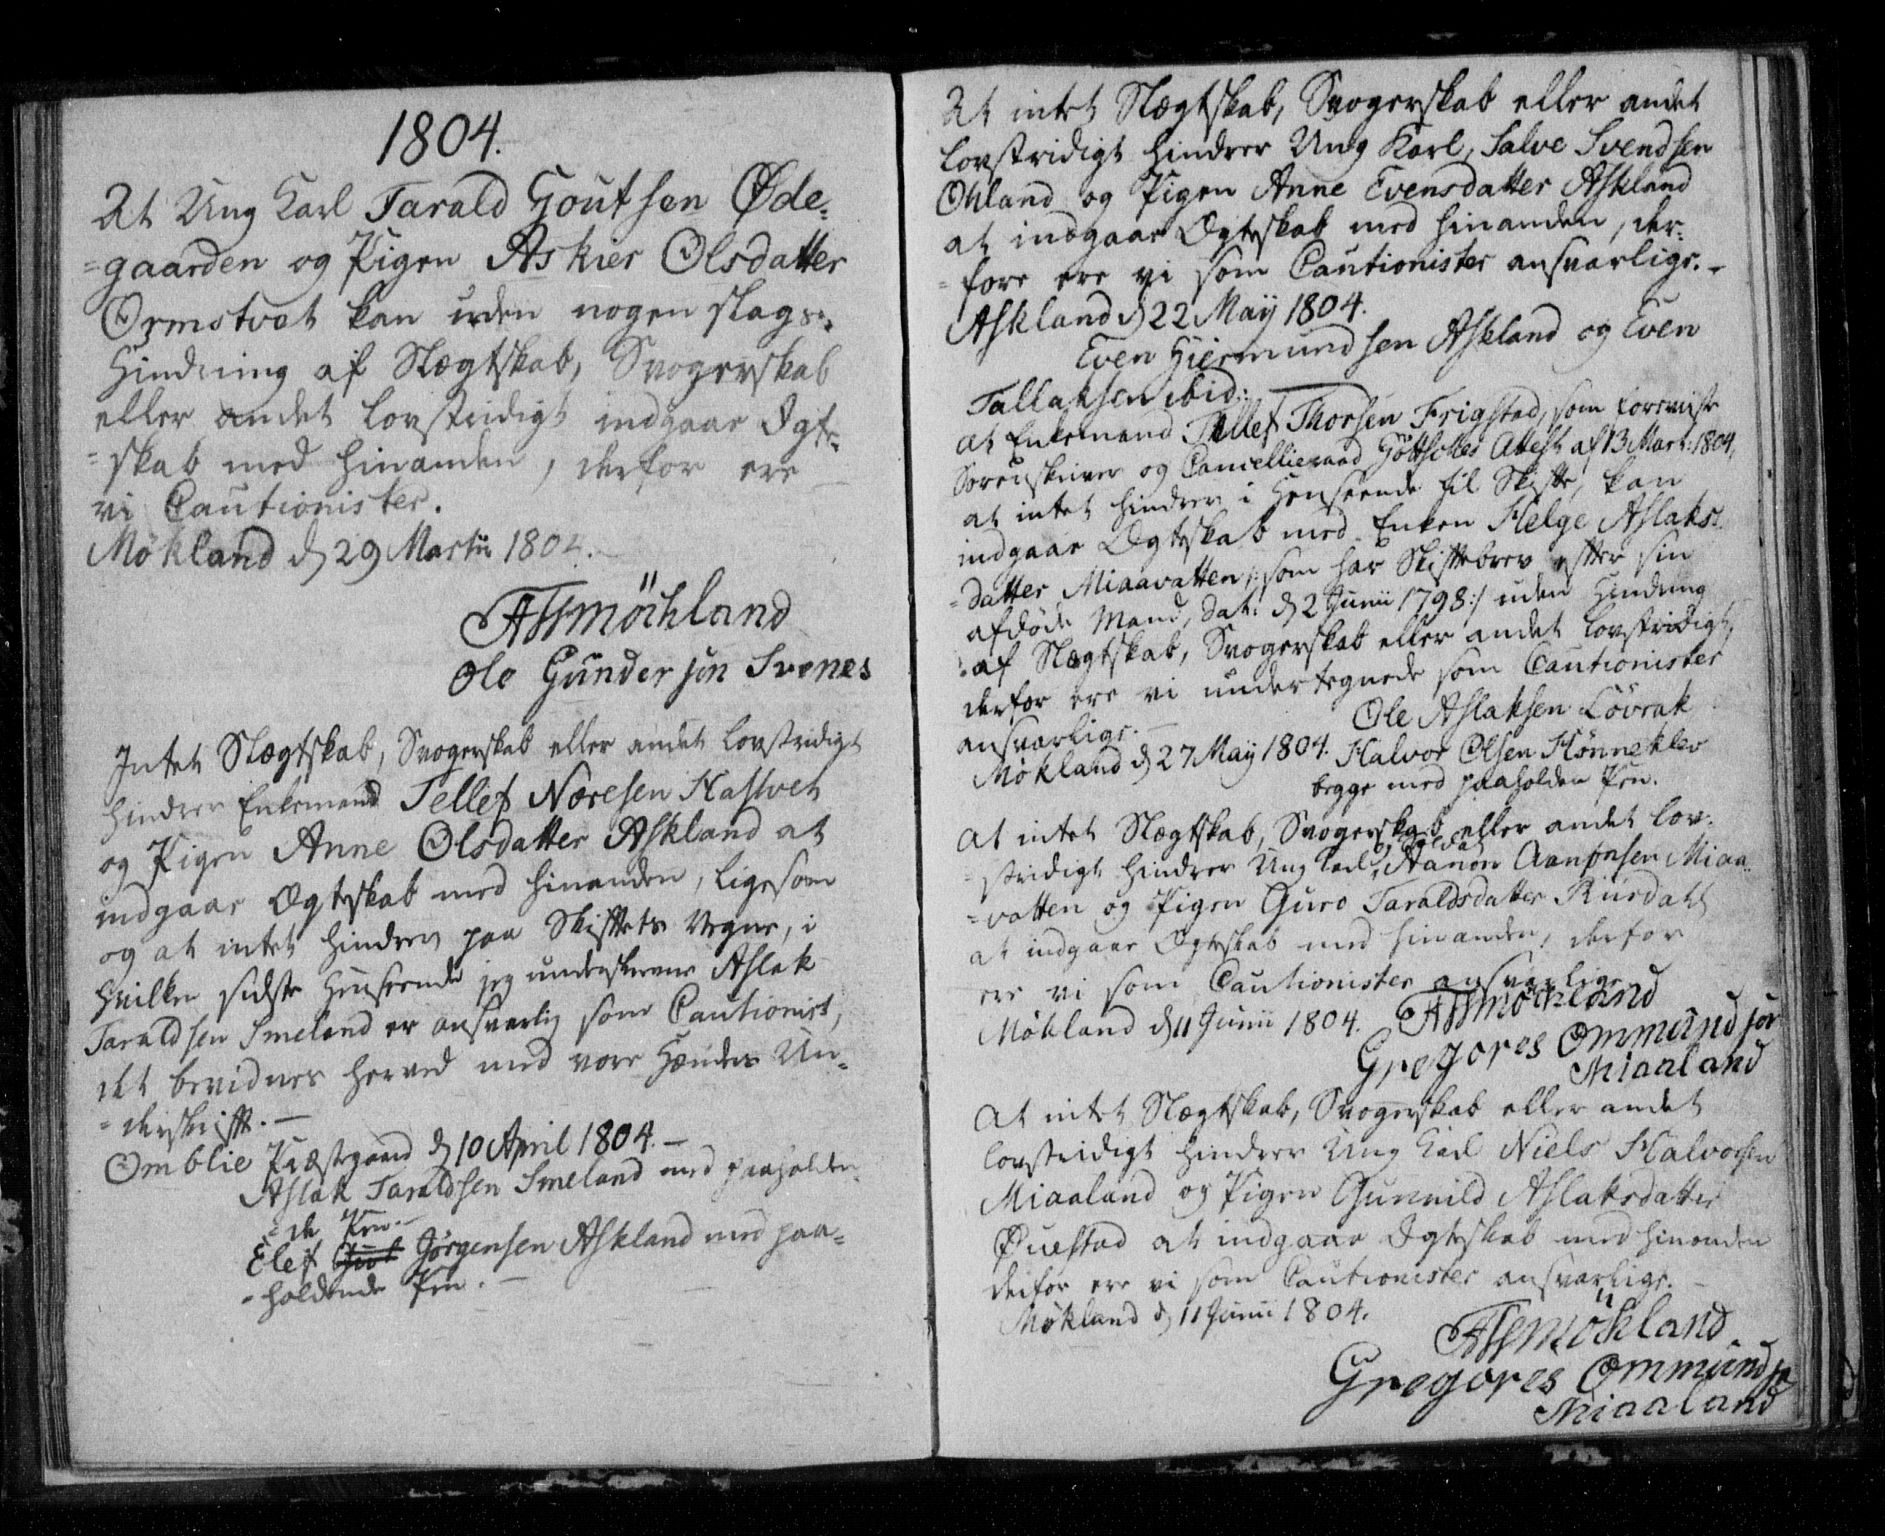 1804.
At Ung Karl Tarald Goutsen Øde-
-gaarden og Pigen Askier Olsdatter
Ormstvet kan uden nogen slags
Hindring af Slægtskab, Svogerskab
eller andet lovstridigt indgaae Ægte-
-skab med hinanden, derfor ere
vi Cautionister.
Møkland d 29 Martii 1804.
Møchland
Ole Gundersøn Svenes
Intet Slægtskab, Svogerskab eller andet lovstridigt
hindrer Enkemand Tellef Næresen Hastvet
og Pigen Anne Olsdatter Askland at
indgaae Ægteskab med hinanden, ligesom
og at intet hindrer paa Skiftets Vegne, i
hvilken sidste Henseende jeg underskrevne Aslak
Taraldsen Smeland er ansvarlig som Cautionist,
det bevidnes herved med vore Hænders Un-
-derskrifft. —
Omblie Præstegaard d 10 April 1804. —
Aslak Taraldsen Smeland med paaholden-
-de Pen. —
Elef Jørgensen Askland med paa-
-holdende Pen. —
At intet Slægtskab, Svogerskab eller andet
lovstridigt hindrer Ung Karl, Salve Svendsen
Okland og Pigen Anne Evensdatter Askland
at indgaae Ægteskab med hinanden, der-
-fore ere vi som Cautionister ansvarlige. -
Askland d 22 Maij 1804.
Even Giermundsen Askland og Even
Tallaksen ibid:
at Enkemand Tellef Thorsen Frigstad, som foreviste
Sorenskriver og Cancellieraad Göttsches Attest af 13 Mart: 1804,
at intet hindrer i Henseende til Skifte, kan
indgaae Ægteskab med Enken Helge Aslaks-
-datter Miaavatten /: som har Skiftebrev efter sin
afdøde Mand, dat: d 2 Junii 1798 :/ uden Hindring
af Slægtskab, Svogerskab eller andet lovstridigt,
derfor ere vi undertegnede som Cautionister
ansvarlige. — Ole Aslaksen Løvrak
Møkland d 27 Maij 1804. Halvor Olsen Hønneklev
begge med paaholden Pen.
At intet Slægtskab, Svogerskab eller andet lov-
-stridigt hindrer Ung Karl, Aanon Aanonsen Miaa-
-vatten og Pigen Guro Taraldsdatter Risdahl
at indgaae Ægteskab med hinanden, derfor
ere vi som Cautionister ansvarlige
Møkland d 11 Junii 1804. Møchland
Gregores Ommundsør
Miaaland
At intet Slægtskab, Svogerskab eller andet
lovstridigt hindrer Ung Karl Niels Halvorsen
Miaaland og Pigen Gunnild Aslaksdatter
Øuestad at indgaae Ægteskab med hinanden
derfor ere vi som Cautionister ansvarlige. —
Møkland d 11 Junii 1804.
Møkland
Gregores Ommundsn
Miaaland